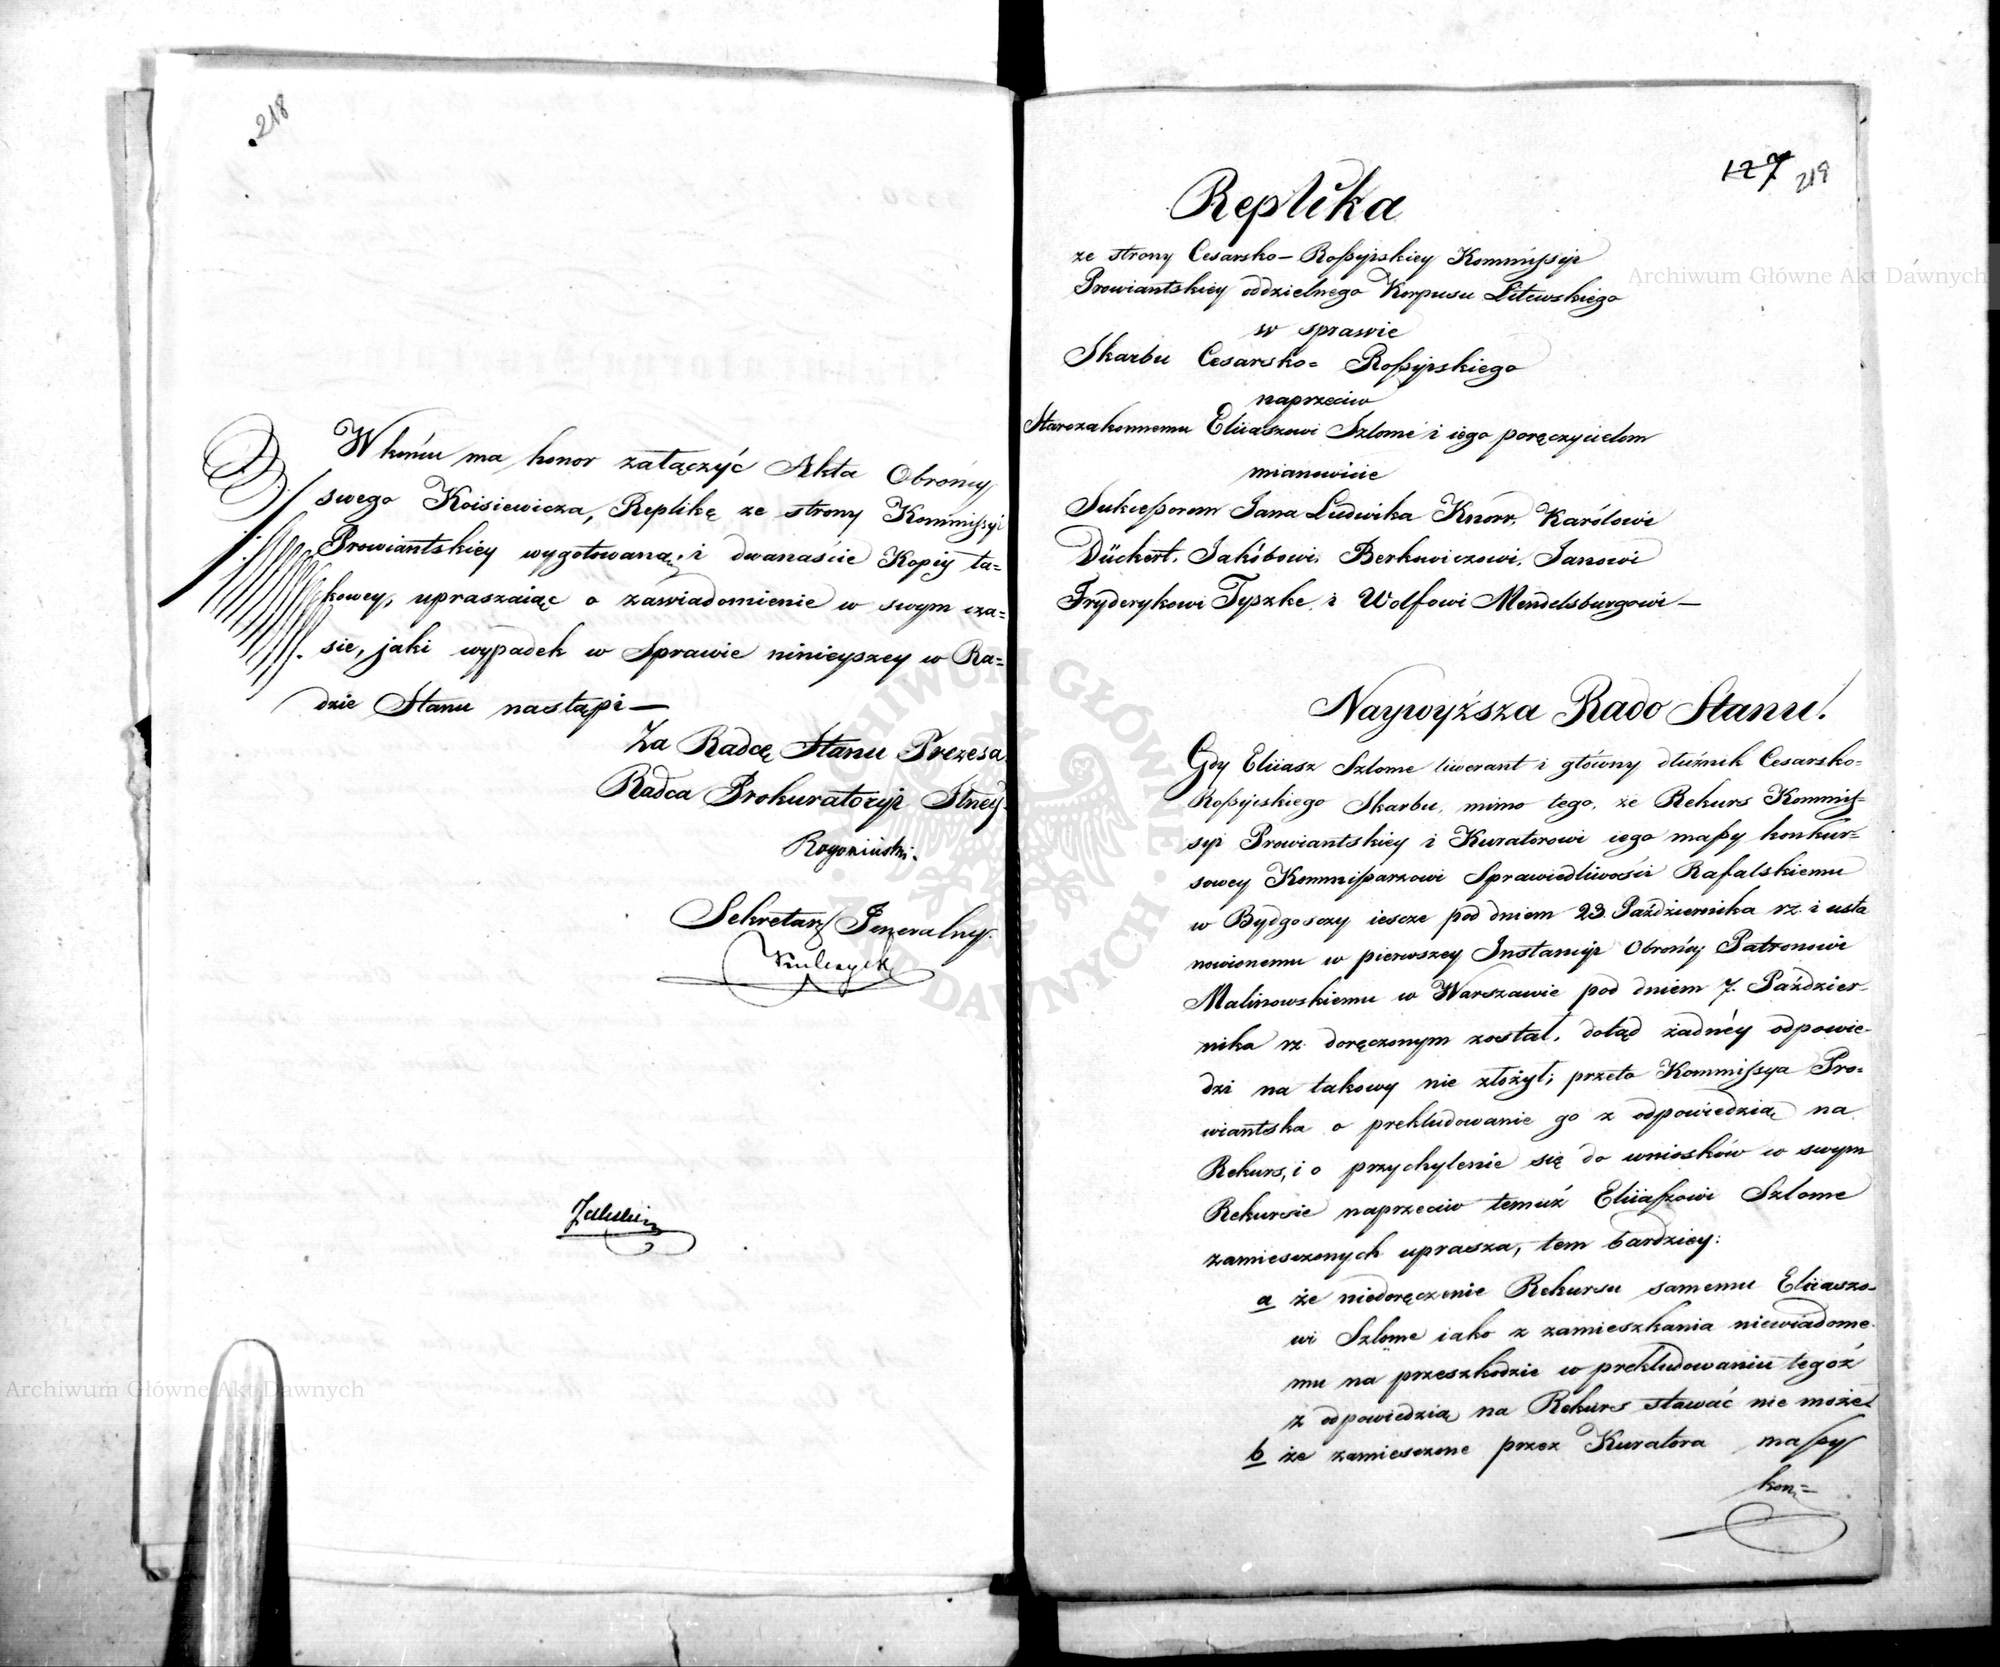 218
W końcu ma honor załączyć Akta Obrońcy
swego Koisiewicza, Replikę ze strony Kommissyi
Prowiantskiey wygotowaną, i dwanaście Kopiy ta=
kowey, upraszaiąc o zawiadomienie w swym cza=
sie, jaki wypadek w Sprawie ninieyszey w Ra=
dzie Stanu nastąpi —
Za Radcę Stanu Prezesa
Radca Prokuratoryi Jlney
Sekretarz Jeneralny.
127 219
Replika
ze strony Cesarsko — Roßyiskiey Kommißyi
Prowiantskiey oddzielnego Korpusu Litewskiego
w sprawie
Skarbu Cesarsko= Roßyiskiego
naprzeciw
Starozakonnemu Eliiaszowi Szlome i iego poręczycielom
mianowicie
Sukceßorom Jana Ludwika Knorr, Karólowi
Dückert, Jakóbowi Berkowiczowi, Janowi
Fryderykowi Tyszke, i Wolfowi Mendelsburgowi —
Naywyższa Rado Stanu!
Gdy Eliiasz Szlome liwerant i główny dłużnik Cesarsko=
Roßyiskiego Skarbu, mimo tego, że Rekurs Kommis=
syi Prowiantskiey i Kuratorowi iego maßy konkur=
sowey Kommißarzowi Sprawiedliwości Rafalskiemu
w Bydgosczy iescze pod dniem 23. Października rz. i usta
nowionemu w pierwszey Instancyi Obrońcy Patronowi
Malinowskiemu w Warszawie pod dniem 7. Paździer=
nika rz. doręczonym został, dotąd żadnéy odpowie=
dzi na takowy nie złożył; przeto Kommißya Pro=
wiantska o prekludowanie go z odpowiedzią na
Rekurs, i o przychylenie się do wniosków w swym
Rekursie naprzeciw temuż Eliiaßzowi Szlome
zamiesczonych uprasza, tem bardziey:
a że niedoręczenie Rekursu samemu Eliiaszo=
wi Szlome iako z zamieszkania niewiadome=
mu na przeszkodzie w prekludowaniu tegoż
z odpowiedzią na Rekurs stawać nie może.
b że zamiesczone przez Kuratora maßy
kon=
Archiwum Główne Akt Dawnych
Archiwum Główne Akt Dawnych
ARCHIWUM GŁÓWNE AKT DAWNYCH